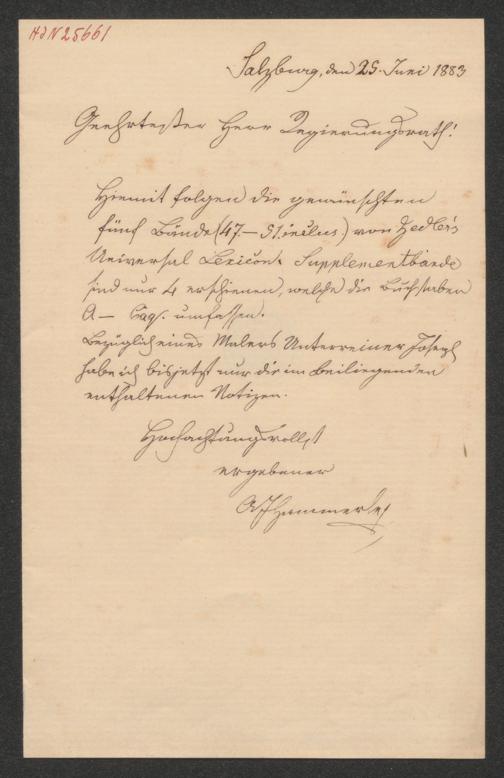 HIN 25661
Salzburg, den 25. Juni 1883
Geehrtester Herr Regierungsrath!
Hiemit folgen die gewünschten
fünf Bände (47.— 51. inclus.) von Zedler's
Universal Lexicon. Supplementbände
sind nur 4 erschienen, welche die Buchstaben
A — Caq. umfassen.
Bezüglich eines Malers Unterreiner Joseph
habe ich bis jetzt nur die im beiliegenden
enthaltenen Notizen.
Hochachtungsvollst
ergebener
A J Hammerle